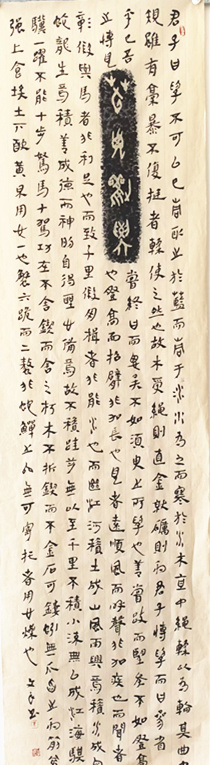 君子曰學不可以已青取之於藍而青于藍冰水為之而寒於水木直中繩輮以為輪其曲中
規雖有槁暴不復挺者輮使之然也故木受繩則直金就礪則利君子博學而日參省
乎己吾
嘗終日而思矣不如須臾之所學也吾嘗跂而望矣不如登高
之博見
荀子勸學
也登高而招臂非加長也見者遠順風而呼聲非加疾也而聞者
彰假輿馬者非利足也而致千里假舟楫者非能水也而絕江河積土成山風雨興焉積水成淵
蛟龍生焉積善成德而神明自得聖心備焉故不積跬步無以至千里不積小流無以成江海騏
驥一躍不能十步駑馬十駕功在不舍鍥而舍之朽木不折鍥而不舍金石可鏤蚓無爪牙之利筋骨之
強上食埃土下飲黃泉用心一也蟹六跪而二螯非蛇鱔之穴無可寄託者用心躁也